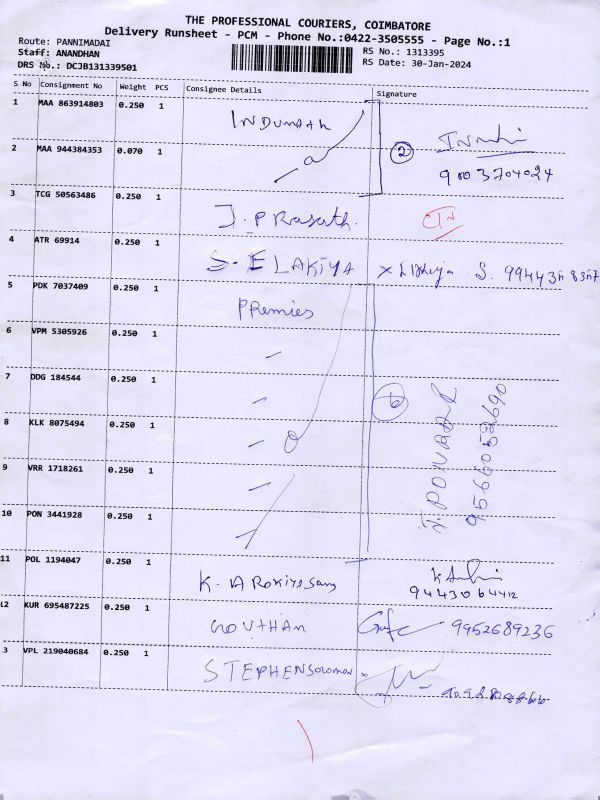 THE PROFESSIONAL COURIERS, COIMBATORE
Delivery Runsheet - PCM - Phone No.:0422-3505555 - Page No.:1
Route: PANNIMADAI
Staff: ANANDHAN
DRS No.: DCJB131339501
RS No.: 1313395
RS Date: 30-Jan-2024
S No Consignment No Weight PCS Consignee Details Signature
1 MAA 863914803 0.250 1
2 MAA 944384353 0.070 1 2
9003704024
3 TCG 50563486 0.250 1 J. PRasath.
4 ATR 69914 0.250 1 S. ELAKIYA
5 PDK 7037409 0.250 1 PRemies
6 VPM 5305926 0.250 1
7 DDG 184544 0.250 1 6
8 KLK 8075494 0.250 1
9 VRR 1718261 0.250 1
10 PON 3441928 0.250 1
9566052690
11 POL 1194047 0.250 1 K. AROKIYASamy
9443064412
12 KUR 695487225 0.250 1 GOUTHAM 9952689236
3 VPL 219040684 0.250 1 STEPHENSolomon